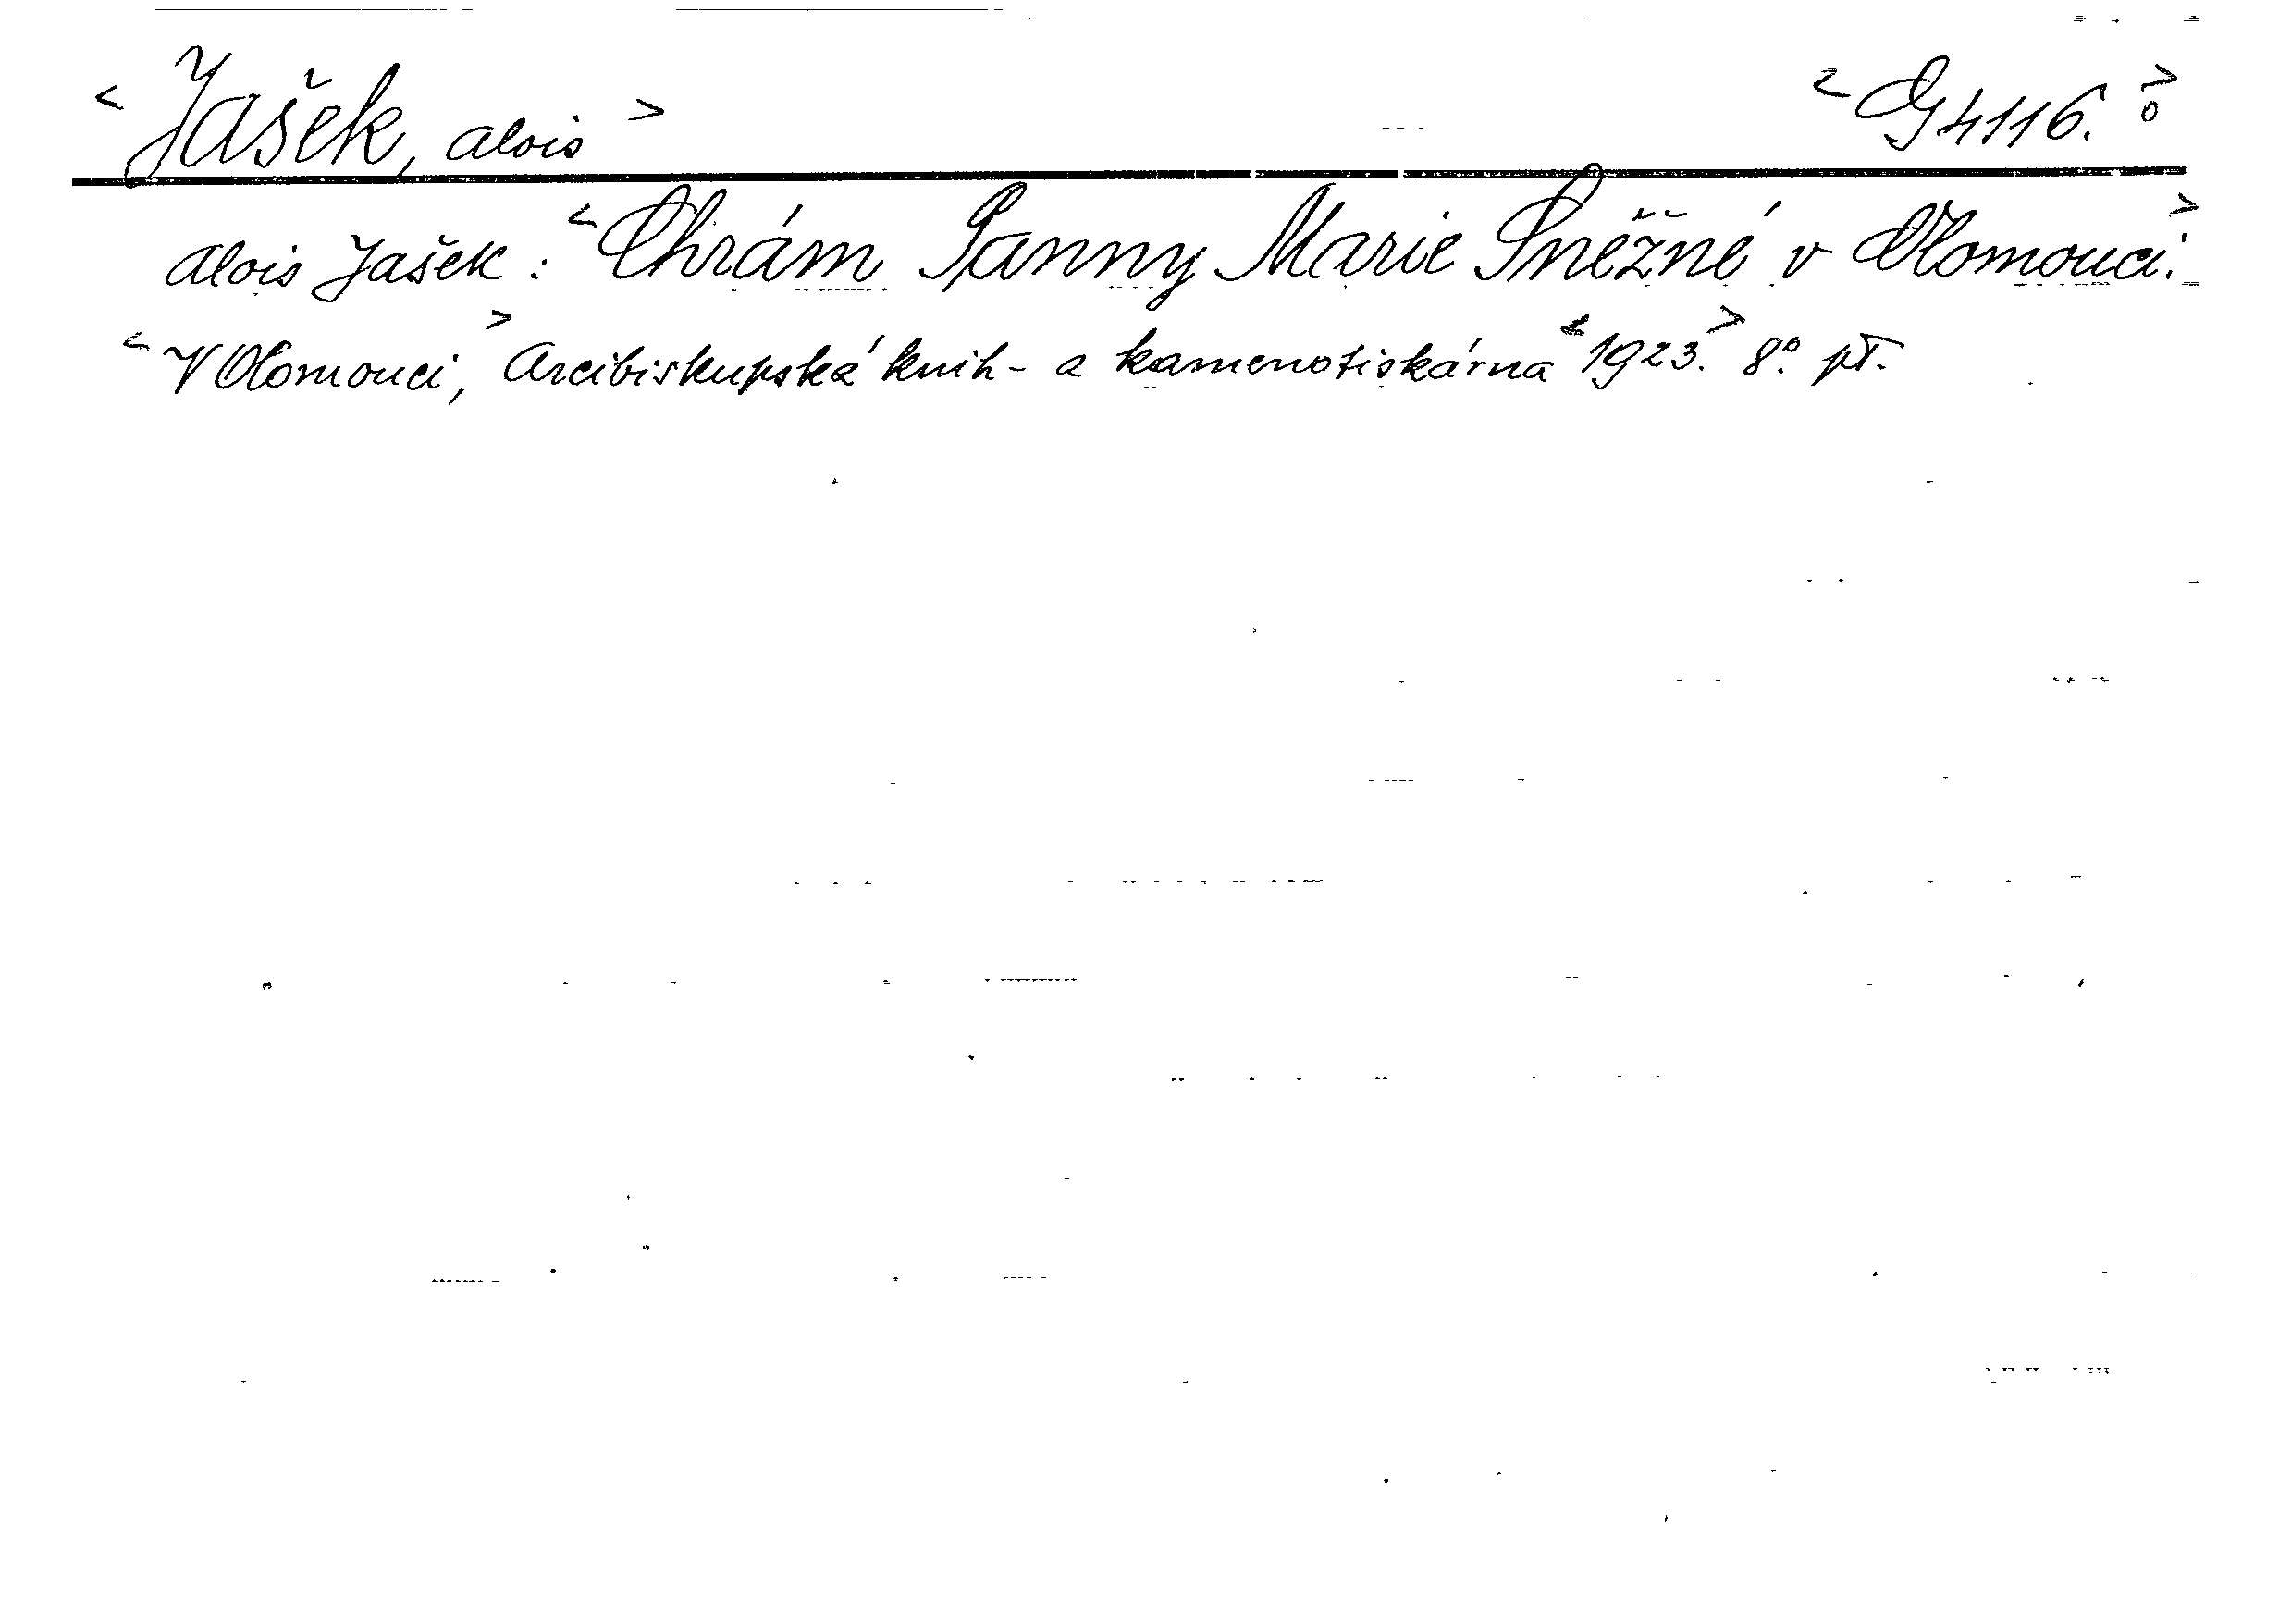 < Jašek, Alois > < G 4116. > o
Alois Jašek: < Chrám Panny Marie Sněžné v Olomouci. >
< V Olomouci, > Arcibiskupská knih- a kamenotiskárna < 1923. > 8° př.